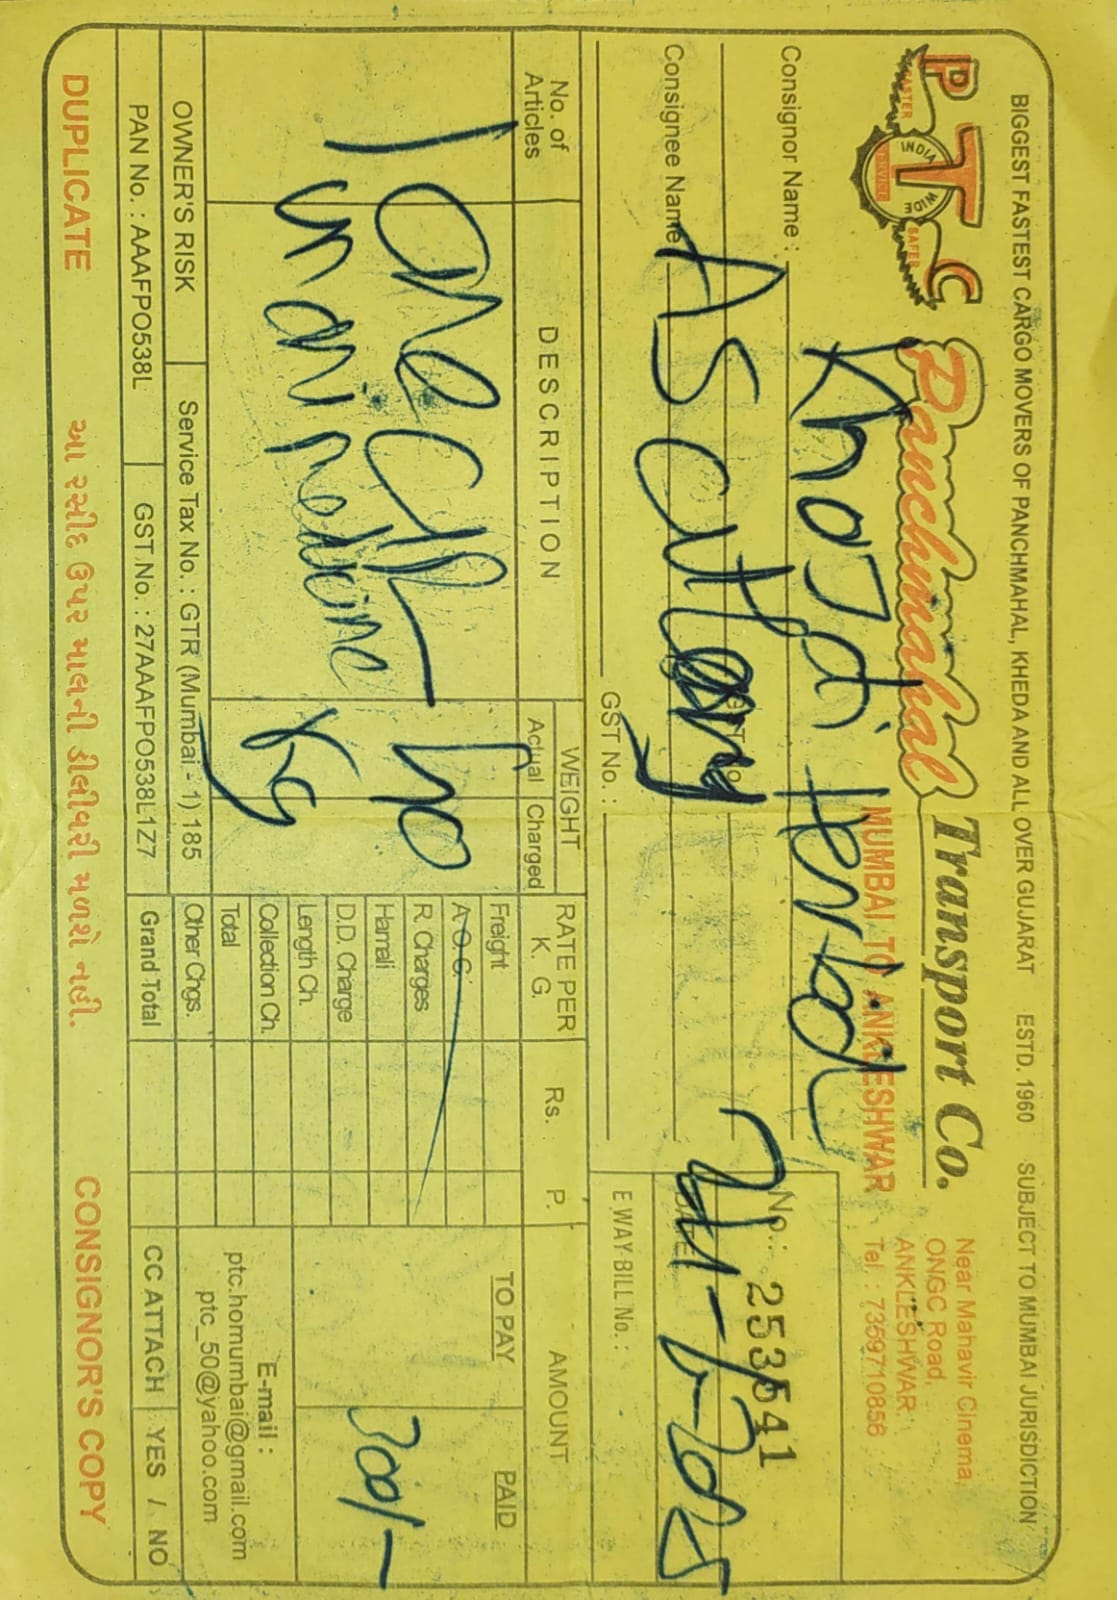 BIGGEST FASTEST CARGO MOVERS OF PANCHMAHAL, KHEDA AND ALL OVER GUJARAT ESTD. 1960 SUBJECT TO MUMBAI JURISDICTION
P T C
FASTER INDIA WIDE SAFER
SERVICE
Panchmahal Transport Co.
MUMBAI TO ANKLESHWAR
Near Mahavir Cinema,
ONGC Road,
ANKLESHWAR.
Tel : 7359710856
Consignor Name : Khojai
No.: 253541
GST No.
Consignee Name As
DATE
GST No.:
E WAY BILL No. :
No. of Articles
DESCRIPTION
WEIGHT
Actual Charged
RATE PER K. G.
Rs. P.
AMOUNT
TO PAY PAID
1 One
40
Kg
300/-
Freight
A.O.C.
R. Charges
Hamali
D.D. Charge
Length Ch.
Collection Ch.
Total
Other Chgs.
Grand Total
E-mail :
ptc.homumbai@gmail.com
ptc_50@yahoo.com
OWNER'S RISK
Service Tax No. : GTR (Mumbai - 1) 185
PAN No. : AAAFPO538L
GST No. : 27AAAFPO538L1Z7
CC ATTACH YES / NO
DUPLICATE
આ રસીદ ઉપર માલની ડીલીવરી મળશે નહી.
CONSIGNOR'S COPY